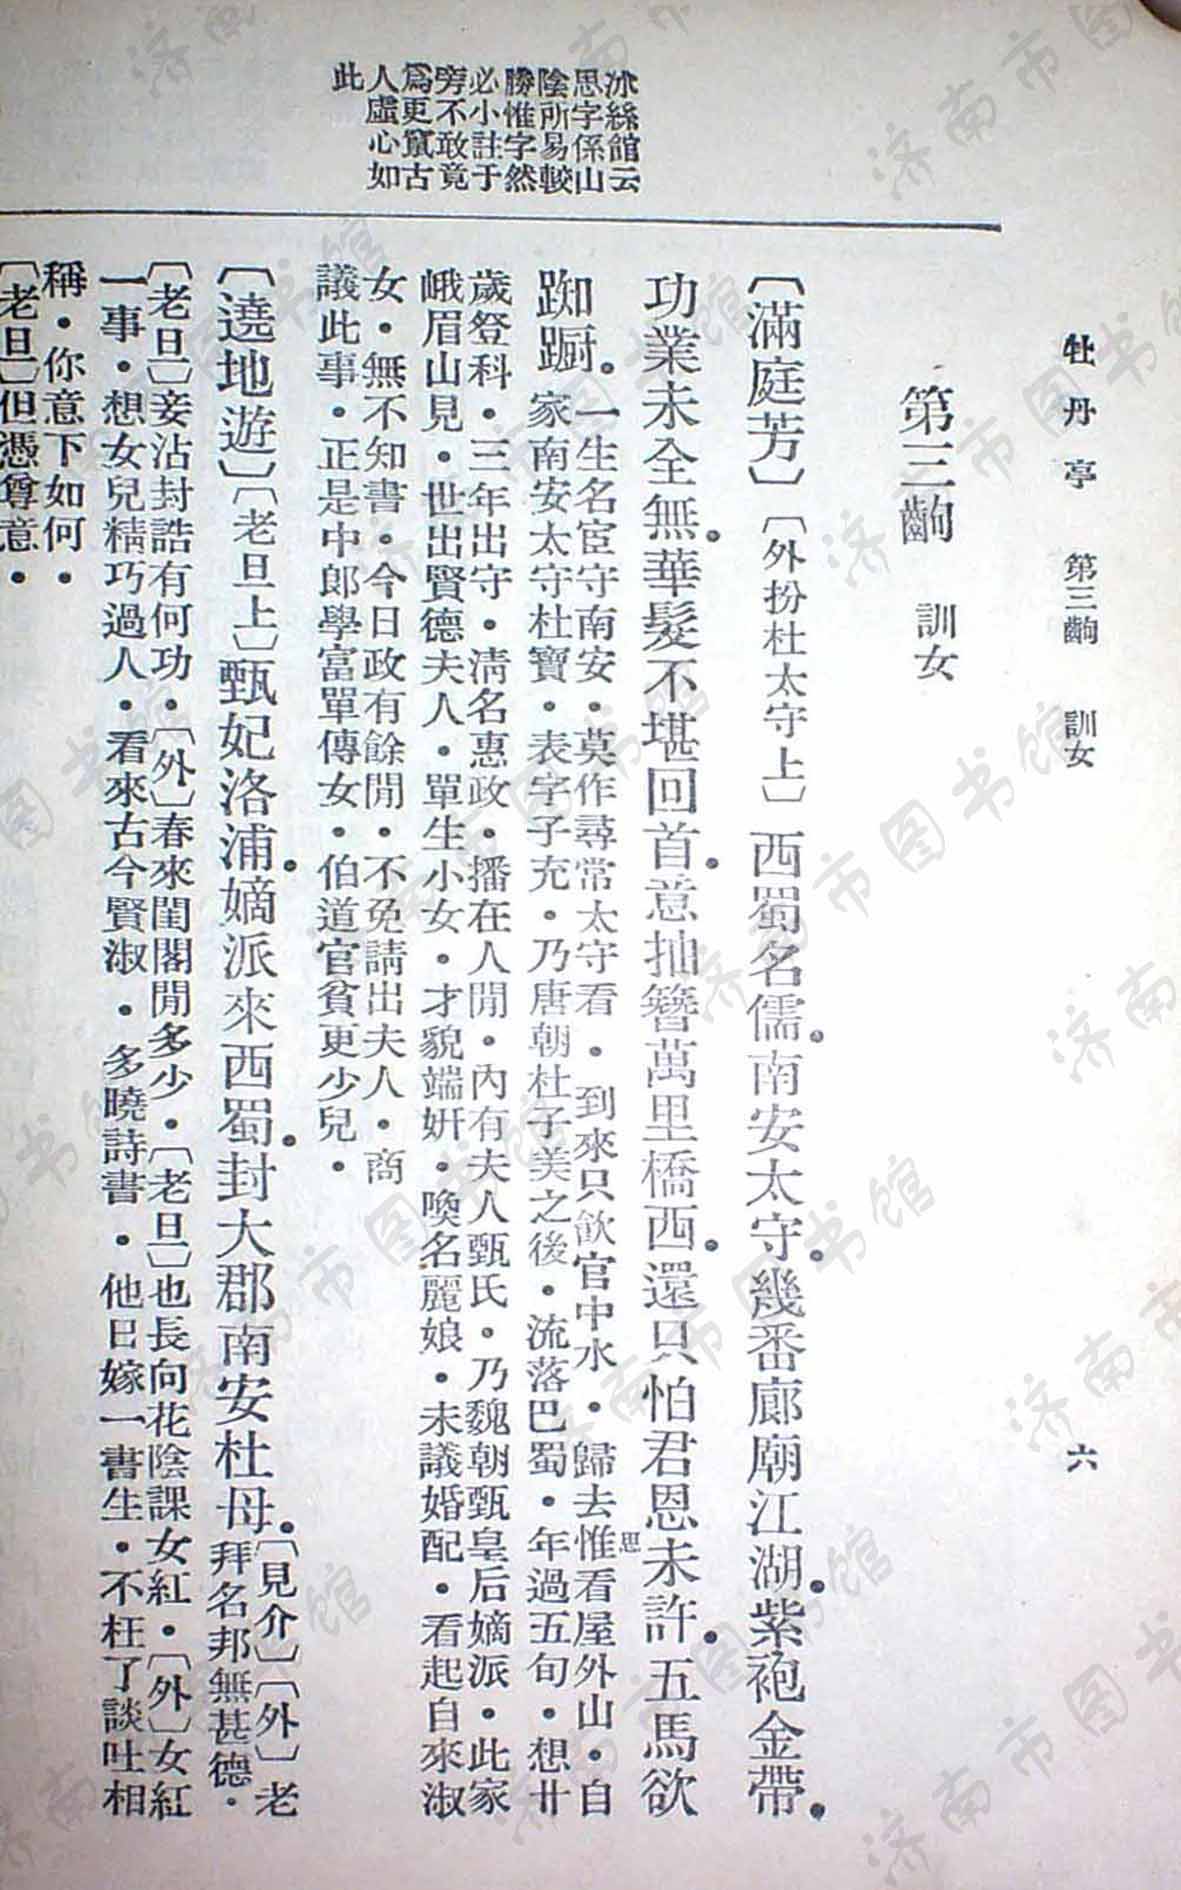 牡丹亭　第三齣　訓女　六
冰絲館云
思字係山
陰所易較
勝惟字然
必小註于
旁不敢竟
爲更竄古
人虛心如
此
第三齣　訓女
〔滿庭芳〕〔外扮杜太守上〕西蜀名儒。南安太守。幾番廊廟江湖。紫袍金帶。
功業未全無。華髮不堪回首。意抽簪萬里橋西。還只怕君恩未許。五馬欲
踟躕。一生名宦守南安・莫作尋常太守看・到來只飲官中水・歸去惟思看屋外山・自
家南安太守杜寶・表字子充・乃唐朝杜子美之後・流落巴蜀・年過五旬・想廿
歲登科・三年出守・清名惠政・播在人間・內有夫人甄氏・乃魏朝甄皇后嫡派・此家
峨眉山見・世出賢德夫人・單生小女・才貌端妍・喚名麗娘・未議婚配・看起自來淑
女・無不知書・今日政有餘閒・不免請出夫人・商
議此事・正是中郎學富單傳女・伯道官貧更少兒・
〔遶地遊〕〔老旦上〕甄妃洛浦。嫡派來西蜀。封大郡南安杜母。〔見介〕〔外〕老
拜名邦無甚德・
〔老旦〕妾沾封誥有何功・〔外〕春來閨閣閒多少・〔老旦〕也長向花陰課女紅・〔外〕女紅
一事・想女兒精巧過人・看來古今賢淑・多曉詩書・他日嫁一書生・不枉了談吐相
稱・你意下如何・
〔老旦〕但憑尊意・
济南市图书馆